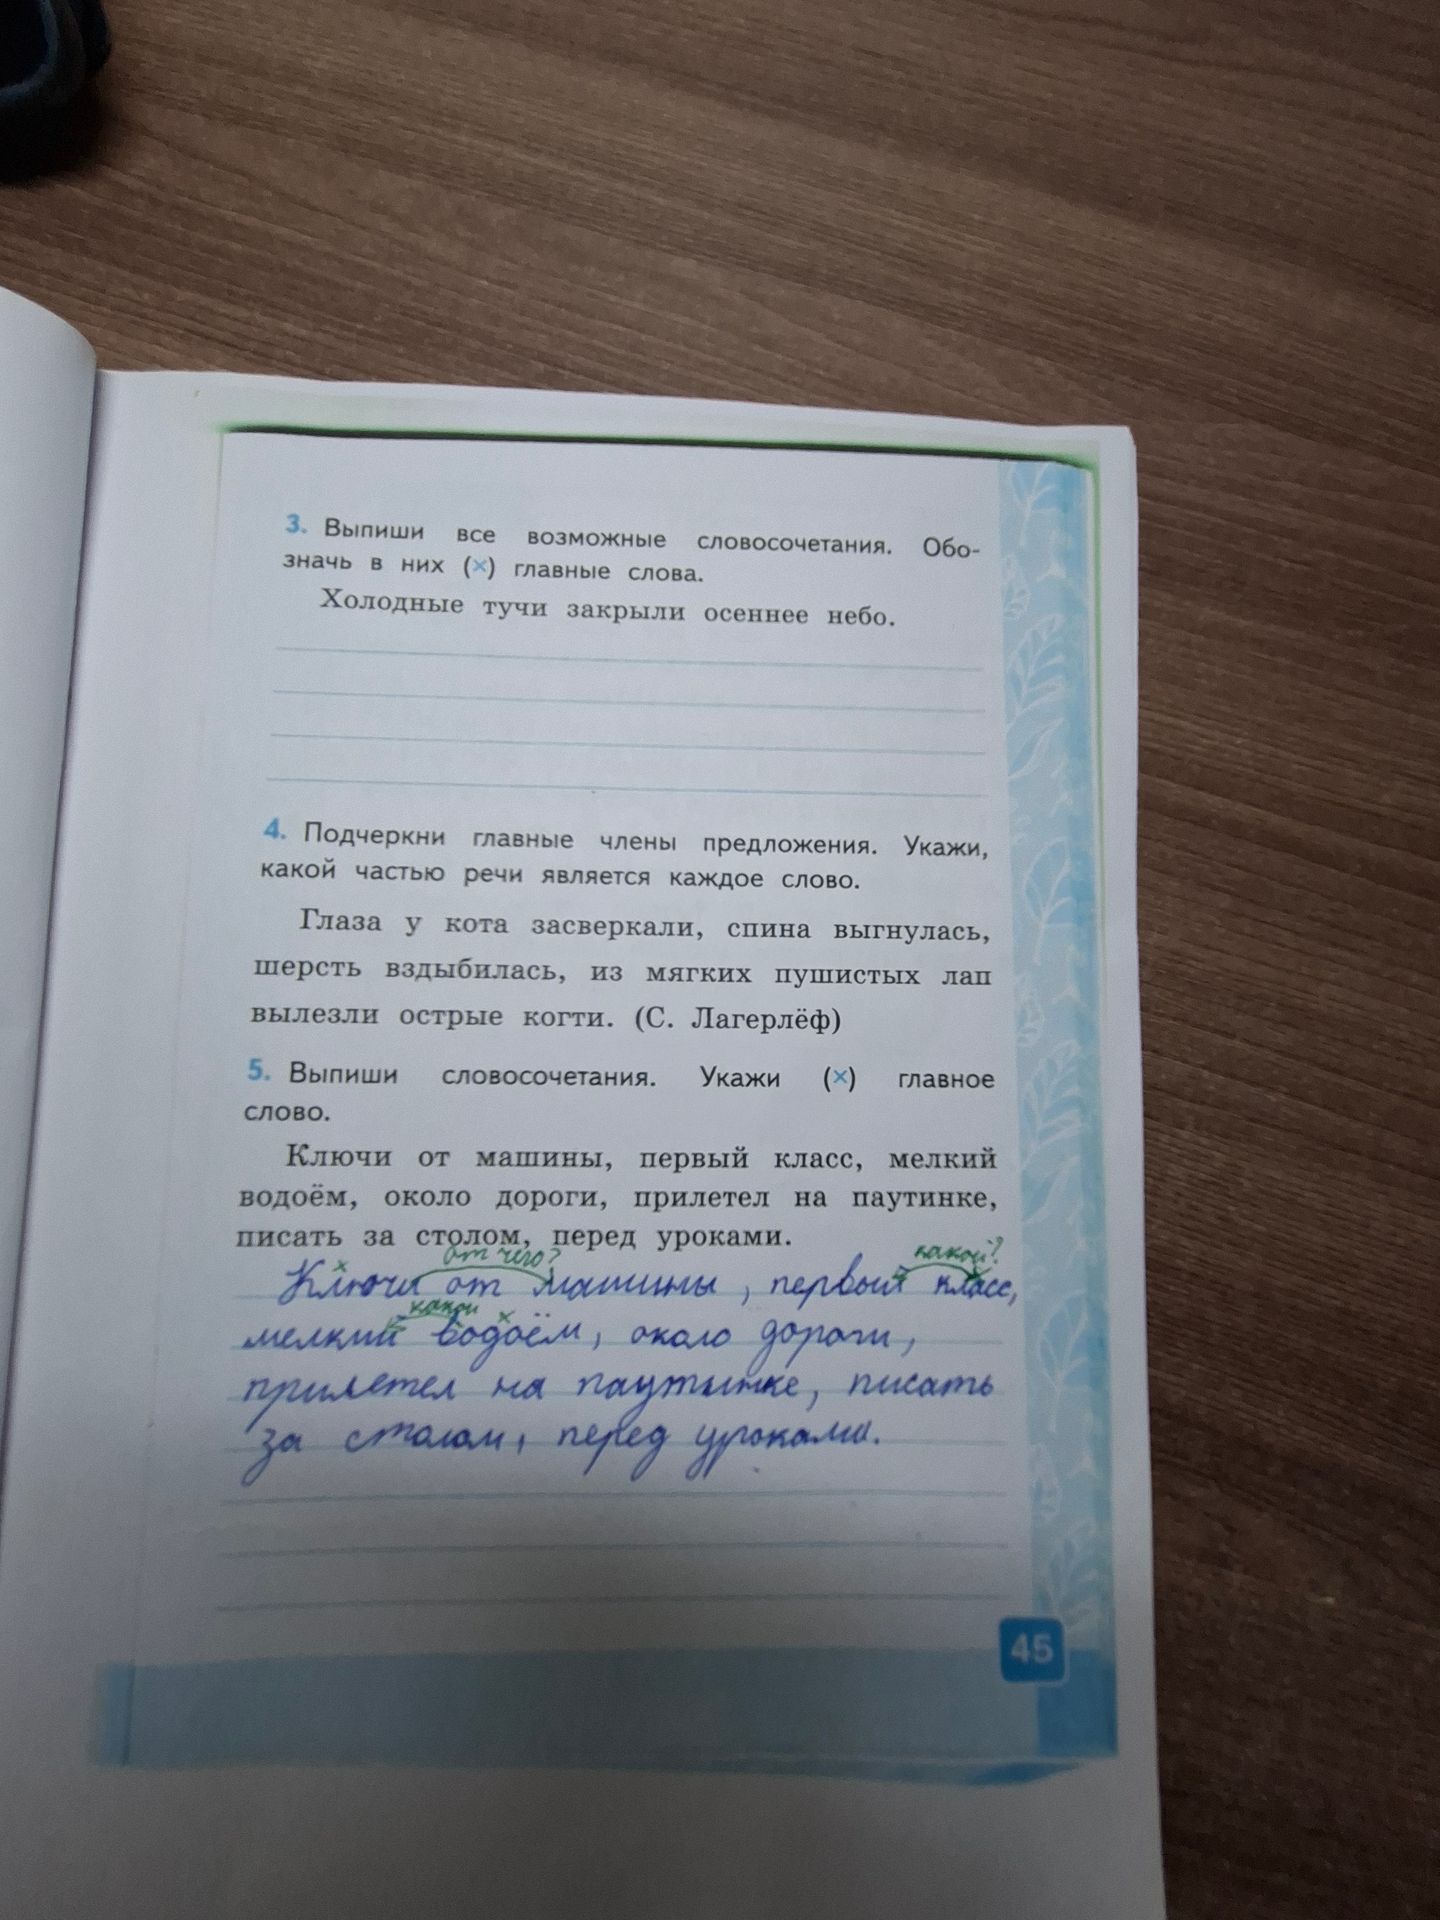 3. Выпиши все возможные словосочетания. Обо-
значь в них (×) главные слова.
Холодные тучи закрыли осеннее небо.
4. Подчеркни главные члены предложения. Укажи,
какой частью речи является каждое слово.
Глаза у кота засверкали, спина выгнулась,
шерсть вздыбилась, из мягких пушистых лап
вылезли острые когти. (С. Лагерлёф)
5. Выпиши словосочетания. Укажи (×) главное
слово.
Ключи от машины, первый класс, мелкий
водоём, около дороги, прилетел на паутинке,
писать за столом, перед уроками.
от чего? какой?
× ×
Ключи от машины, первый класс,
какой ×
мелкий водоём, около дороги,
прилетел на паутинке, писать
за столом, перед уроками.
45